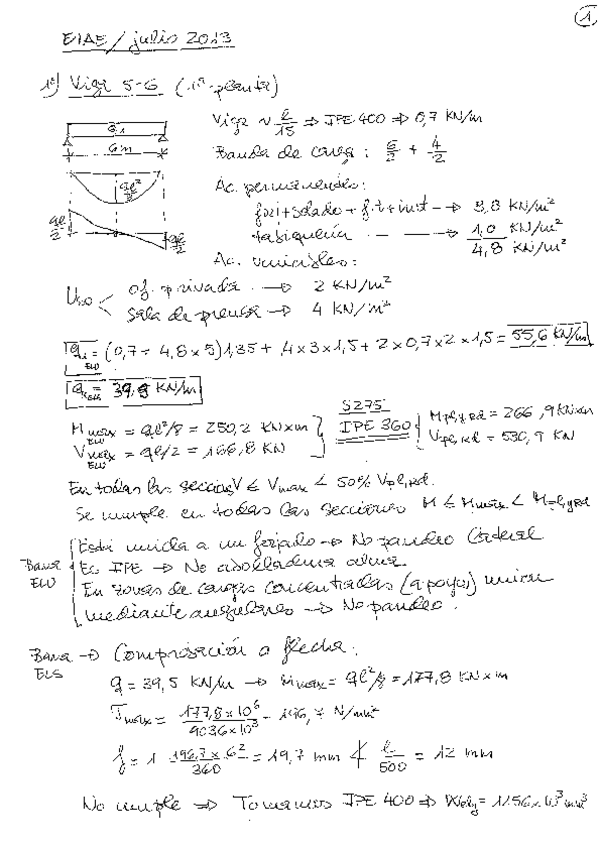 1
EIAE / julio 2013
1º) Viga 5-6 (1ª planta)
Viga ~ l/15 ⇒ IPE 400 ⇒ 0,7 KN/m
q1
6m
Banda de carga: 6/2 + 4/2
ql²/8
ql/2
ql/2
Ac. permanentes:
forj+solado+f.t+inst → 3,8 KN/m²
tabiquería → 1,0 KN/m²
4,8 KN/m²
Ac. variables:
Uso < of. privada → 2 KN/m²
sala de prensa → 4 KN/m²
q ELU = (0,7 + 4,8 x 5) 1,35 + 4 x 3 x 1,5 + 2 x 0,7 x 2 x 1,5 = 55,6 KN/m
q ELS = 39,5 KN/m
M max ELU = ql²/8 = 250,2 KN x m
V max ELU = ql/2 = 166,8 KN
S275
IPE 360
Mpl,y,Rd = 266,9 KNxm
Vpl,Rd = 530,9 KN
En todas las secciones V ≤ Vmax < 50% Vpl,Rd.
Se cumple en todas las secciones M ≤ Mmax < Mpl,yRd
Barra ELU
Está unida a un forjado → No pandeo lateral
Es IPE → No abolladura alma.
En zonas de cargas concentradas (apoyos) unión
mediante angulares → No pandeo.
Barra ELS → Comprobación a flecha:
q = 39,5 KN/m → Mmax = ql²/8 = 177,8 KN x m
σmax = 177,8 x 10⁶ / 903,6 x 10³ = 196,7 N/mm²
f = 1 196,7 x 6² / 360 = 19,7 mm ≮ l/500 = 12 mm
No cumple ⇒ Tomamos IPE 400 ⇒ Wely = 1156 x 10³ mm³